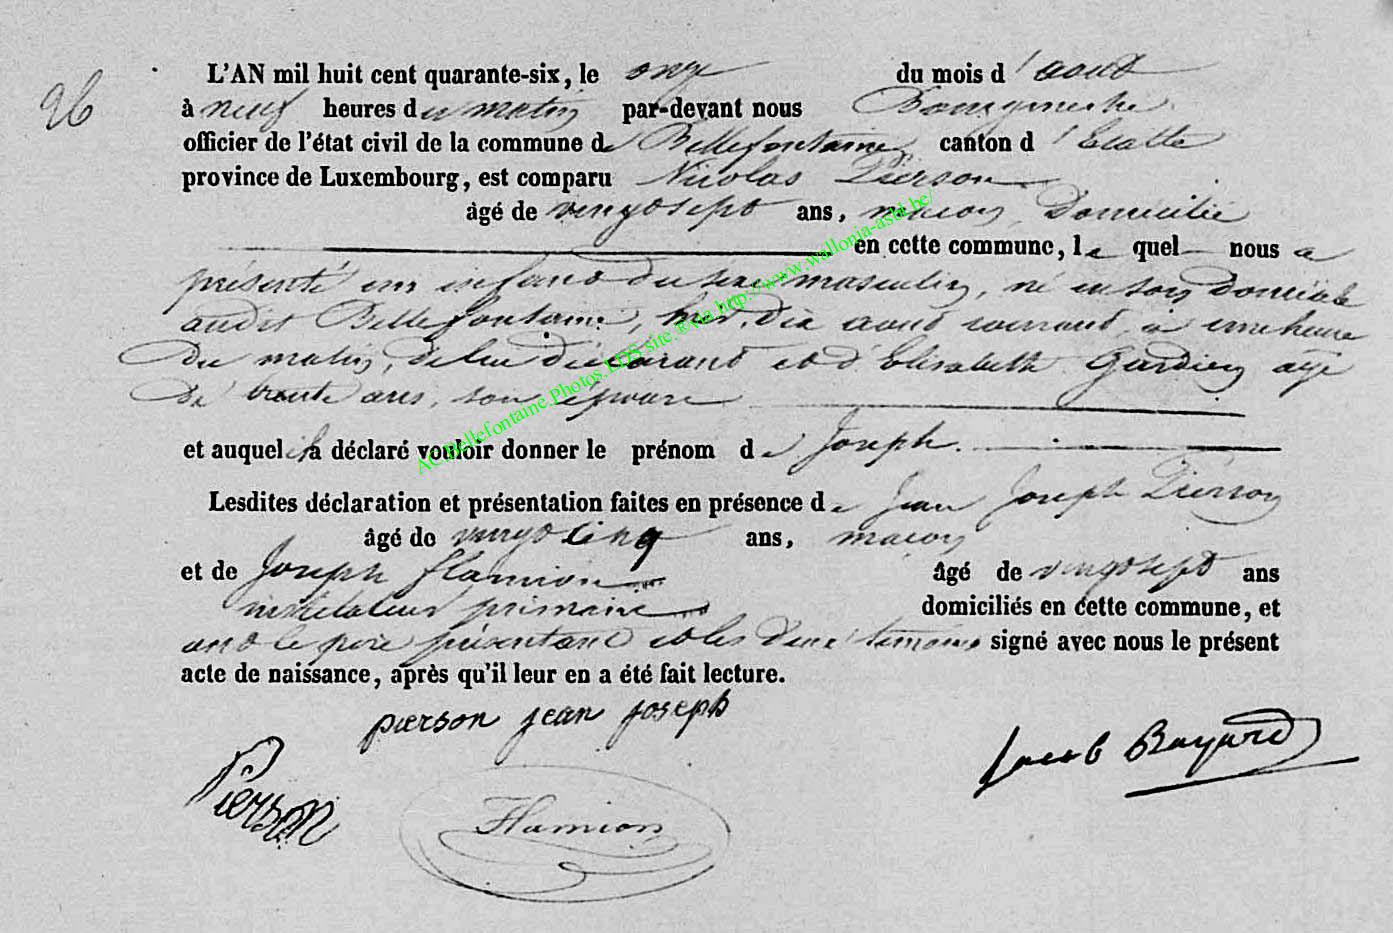 26
L'AN mil huit cent quarante-six, le onze du mois d'aout
à neuf heures du matin par-devant nous Bourgmestre
officier de l'état civil de la commune de Bellefontaine canton d'Etalle
province de Luxembourg, est comparu Nicolas Pierson
âgé de vingt sept ans, maçon, Domicilié
en cette commune, lequel nous a
présenté un enfant du sexe masculin, né en son Domicile
audit Bellefontaine, hier, dix aout courant à une heure
Du matin, de lui déclarant et d'Elisabeth Gardien agé
De trente ans, son épouse
et auquel il a déclaré vouloir donner le prénom de Joseph.
Lesdites déclaration et présentation faites en présence de Jean Joseph Pierson
âgé de vingt cinq ans, maçon
et de Joseph flamion âgé de vingt sept ans
instituteur primaire domiciliés en cette commune, et
ont le père présentant et les deux témoins signé avec nous le présent
acte de naissance, après qu'il leur en a été fait lecture.
pierson jean joseph
Pierson
Flamion
Jacob Bayard
AC.Bellefontaine.Photos.LDS site.®via http://www.wallonia-asbl.be/